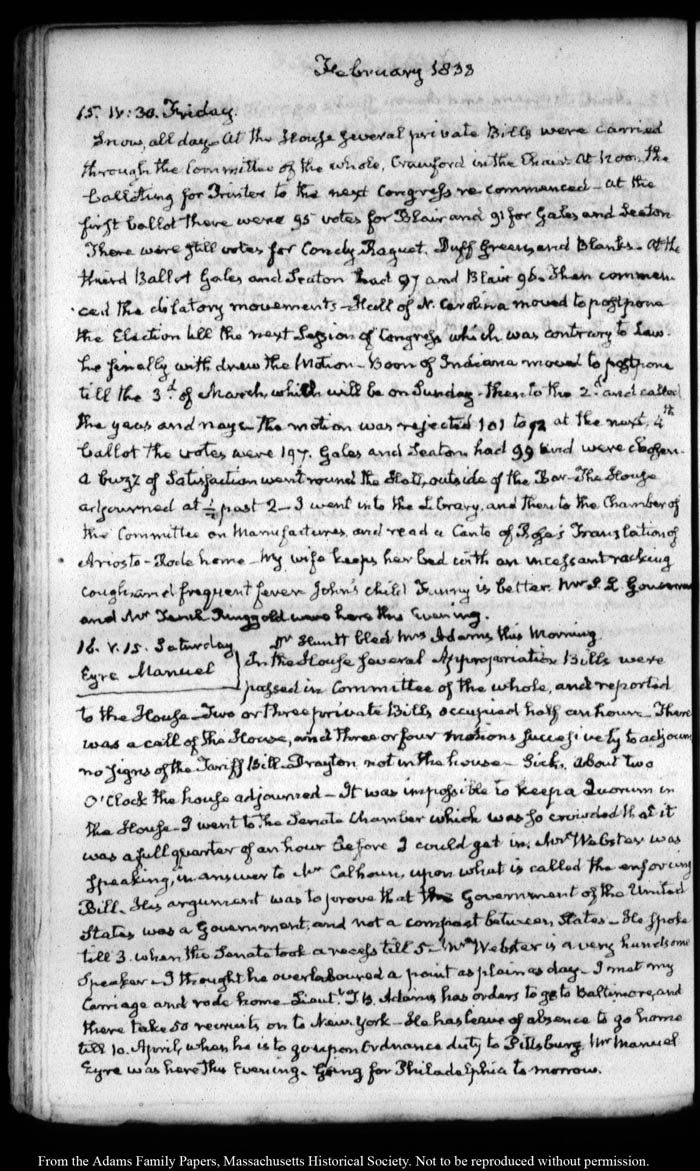 February 1833
15. IV:30. Friday.
Snow, all day. At the House several private Bills were carried
through the Committee of the whole, Crawford in the Chair. At Noon, the
ballotting for Printer to the next Congress re-commenced — at the
first ballot there were 95 votes for Blair and 91 for Gales and Seaton
There were still votes for Condy Raguet, Duff Green, and Blanks. At the
third Ballot Gales and Seaton had 97 and Blair 96. Then commen-
ced the dilatory movements — Hall of N. Carolina moved to postpone
the Election till the next Session of Congress which was contrary to Law.
he finally withdrew the Motion — Boon of Indiana moved to postpone
till the 3.d of March, which will be on Sunday — then to the 2.d and called
the yeas and nays — the motion was rejected 101 to 92 at the next, 4th
ballot the votes were 197. Gales and Seaton had 99 and were chosen.
A buzz of Satisfaction went round the Hall, outside of the Bar — The House
adjourned at ½ past 2 — I went into the Library, and then to the Chamber of
the Committee on Manufactures, and read a Canto of Rose's Translation of
Ariosto — Rode home — My wife keeps her bed with an incessant racking
cough, and frequent fever. John's child Fanny is better. Mr S. L. Gouverneur
and Mr Ringgold were here this Evening.
16. V.15. Saturday Dr Huntt bled Mrs Adams this Morning.
Eyre Manuel In the House several Appropriation Bills were
passed in Committee of the whole, and reported
to the House — Two or three private Bills occupied half an hour — There
was a call of the House, and three or four motions successively to adjourn
no signs of the Tariff Bill — Drayton not in the house — Sick. About two
O'Clock the house adjourned — It was impossible to keep a Quorum in
the House — I went to the Senate Chamber which was so crowded that it
was a full quarter of an hour before I could get in. Mr Webster was
speaking, in answer to Mr Calhoun, upon what is called the enforcing
Bill. His argument was to prove that the Government of the United
States was a Government, and not a compact between States — He spoke
till 3. when the Senate took a recess till 5 — Mr Webster is a very handsome
Speaker — I thought he overlaboured a point as plain as day — I met my
Carriage and rode home — Lieut.t J. B. Adams has orders to go to Baltimore, and
there take 50 recruits on to New York — He has leave of absence to go home
till 10. April, when he is to go upon Ordnance duty to Pittsburg. Mr Manuel
Eyre was here this Evening. Going for Philadelphia to morrow.
From the Adams Family Papers, Massachusetts Historical Society. Not to be reproduced without permission.